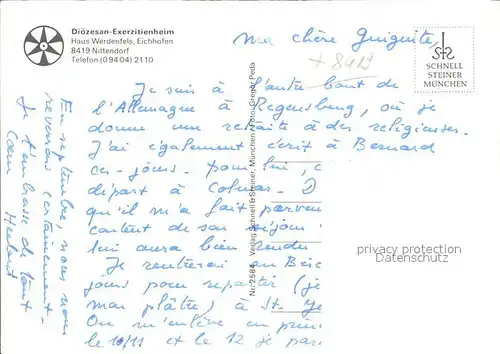 Diözesan-Exerzitienheim
Haus Werdenfels, Eichhofen
8419 Nittendorf
Telefon (09404) 2110
ma chère Guiguite,
+ 8419
SCHNELL
STEINER
MÜNCHEN
Je suis à l'autre bout de
l'Allemagne à Regensburg, où je
donne une retraite à des religieuses.
J'ai également écrit à Bernard
ces jours. pour lui,
départ à Colmar.
qu'il m'a fait parven
content de son séjour
lui aura bien
Je rentrerai
jours pour repartir
mon plâtre) à St.
On m'enlève en prin
le 10/11 et le 12 je par
En septembre, nous nous
reverrons certainement.
Je t'embrasse de tout
cœur Hubert
Nr. 2584 Verlag Schnell & Steiner, München · Foto: Gregor Peda
privacy protection
Datenschutz